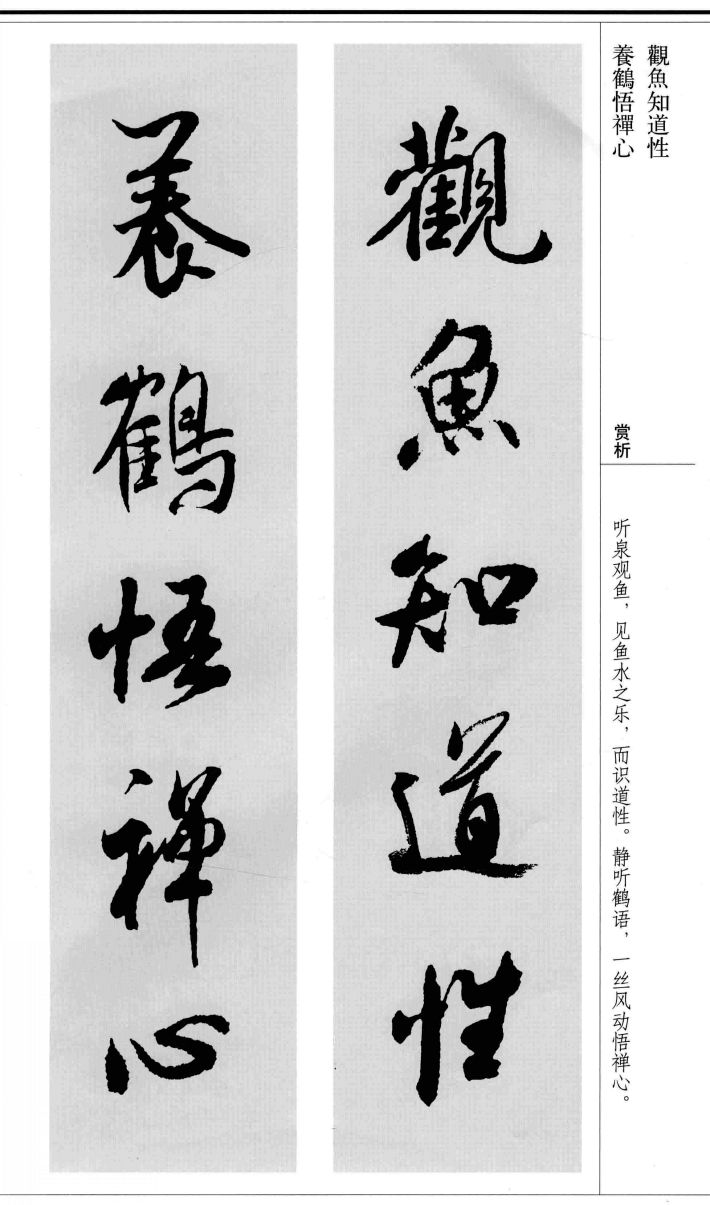 觀魚知道性
養鶴悟禪心
赏析
听泉观鱼，见鱼水之乐，而识道性。静听鹤语，一丝风动悟禅心。
觀魚知道性
養鶴悟禪心